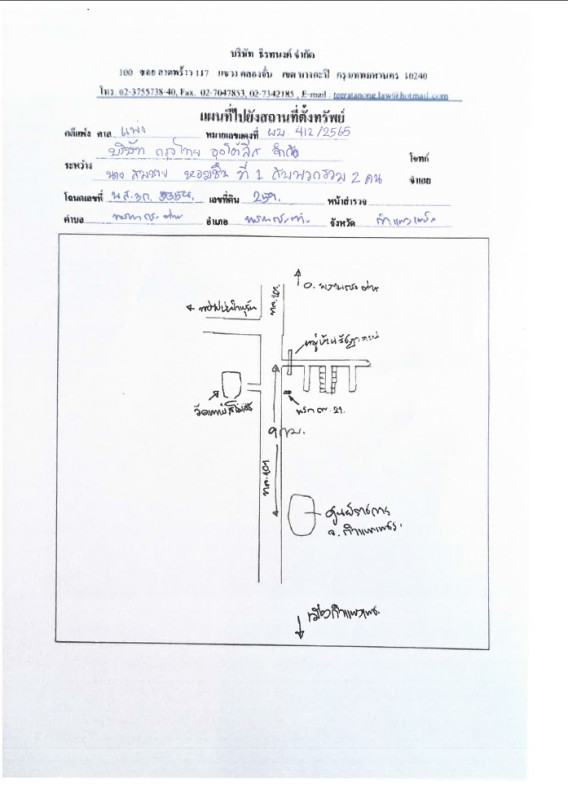 บริษัท ธีรทนงค์ จำกัด
100 ซอย ลาดพร้าว 117 แขวง คลองจั่น เขต บางกะปิ กรุงเทพมหานคร 10240
โทร. 02-3755738-40, Fax. 02-7047853, 02-7342185 , E-mail : teeratanong.law@hotmail.com
แผนที่ไปยังสถานที่ตั้งทรัพย์
คดีแพ่ง ศาล แพ่ง หมายเลขแดงที่ ผบ. 412/2565
บริษัท กรุงไทย ออโต้ลีส จำกัด
ระหว่าง โจทก์
นาง ที่ 1 กับพวกรวม 2 คน จำเลย
โฉนดเลขที่ น.ส.3ก. เลขที่ดิน หน้าสำรวจ
ตำบล พรานกระต่าย อำเภอ พรานกระต่าย จังหวัด กำแพงเพชร
อ. พรานกระต่าย
ทล.101
หมู่บ้าน
9 กม.
ทล.101
ศูนย์ราชการ
จ. กำแพงเพชร
เมืองกำแพงเพชร